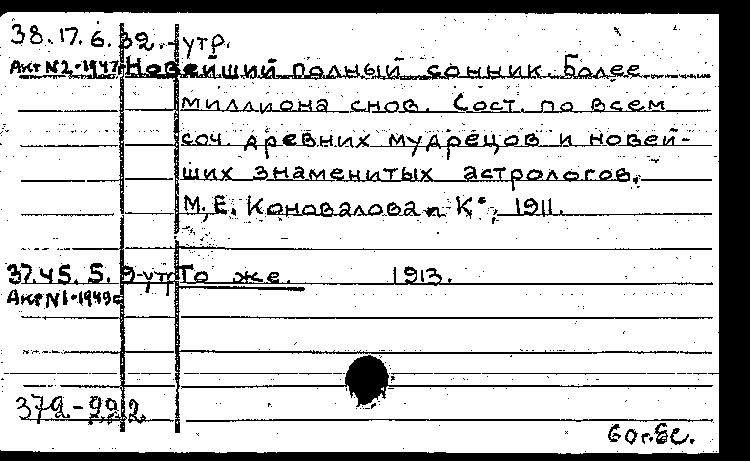 38.17.6.32.-утр.
Акт №2-1947г. Новейший полный сонник. Более
миллиона снов. Сост. по всем
соч. древних мудрецов и новей-
ших знаменитых астрологов.
М., Е. Коновалова и К°, 1911.
37.45.5.9-утр. То же. 1913.
Акт №1-1949г.
60г.